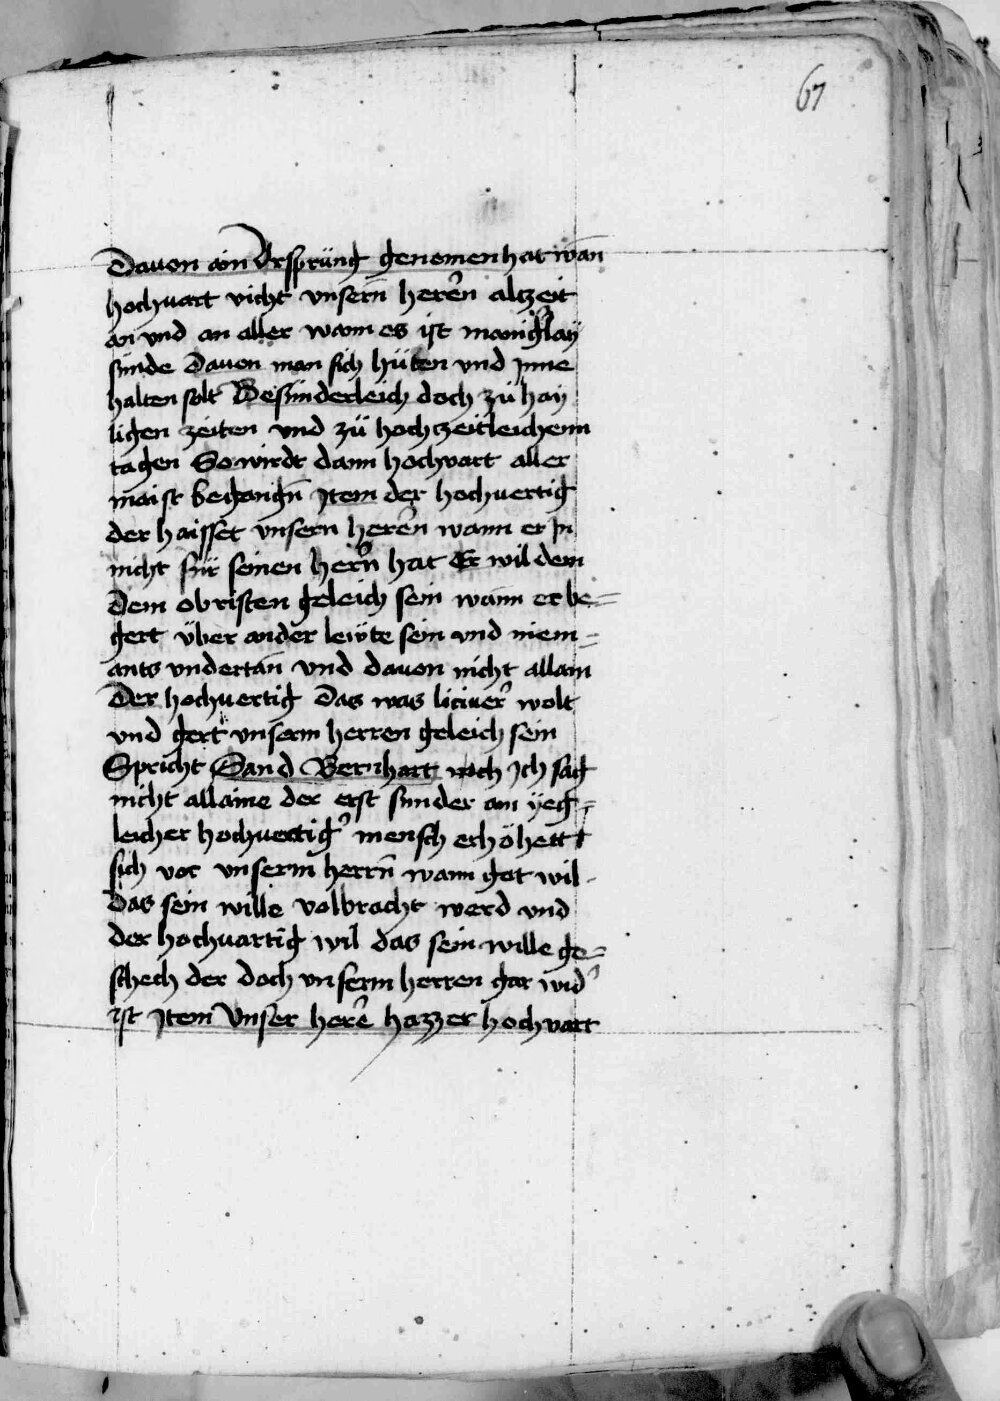 67
Dauon ain Ursprüng genomen hat wan̄
hochuart vicht vnsern̄ herrē̄n alczeit
an vnd an aller wann es ist manigslay
sünde Dauon man sich hüten vnd Inne
halten solt Besünderleich doch zü hay
ligen zeiten vnd zü hochzeitleichenn
tagen So wirdt dann hochvart aller
maist begangn̄ Item der hochuertig
der haisset vnsern herēn wann er In
nicht für seinen herñ hat Er wil dem
dem obristen geleich sein wann er be=
gert über ander lewte sein vnd niem=
ants vndertan vnd dauon nicht allain
Der hochuertig Das was lucifer wolt
vnd gert vnserm herren geleich sein
Spricht Sand Bernhart noch Ich sag
nicht allaine der erst sunder ain yeg=
leicher hochuertig' mensch erhöhett
sich vor vnserm herrn̄ wann got wil
Das sein wille volbracht werd vnd
der hochuartig wil das sein wille ge=
schech der doch vnserm herren gar wid'
ist Item Vnser herē hazzer hochvart